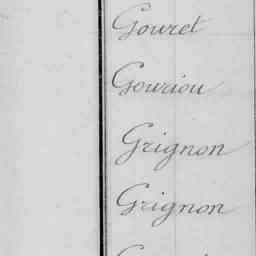 Gouret
Gouriou
Grignon
Grignon